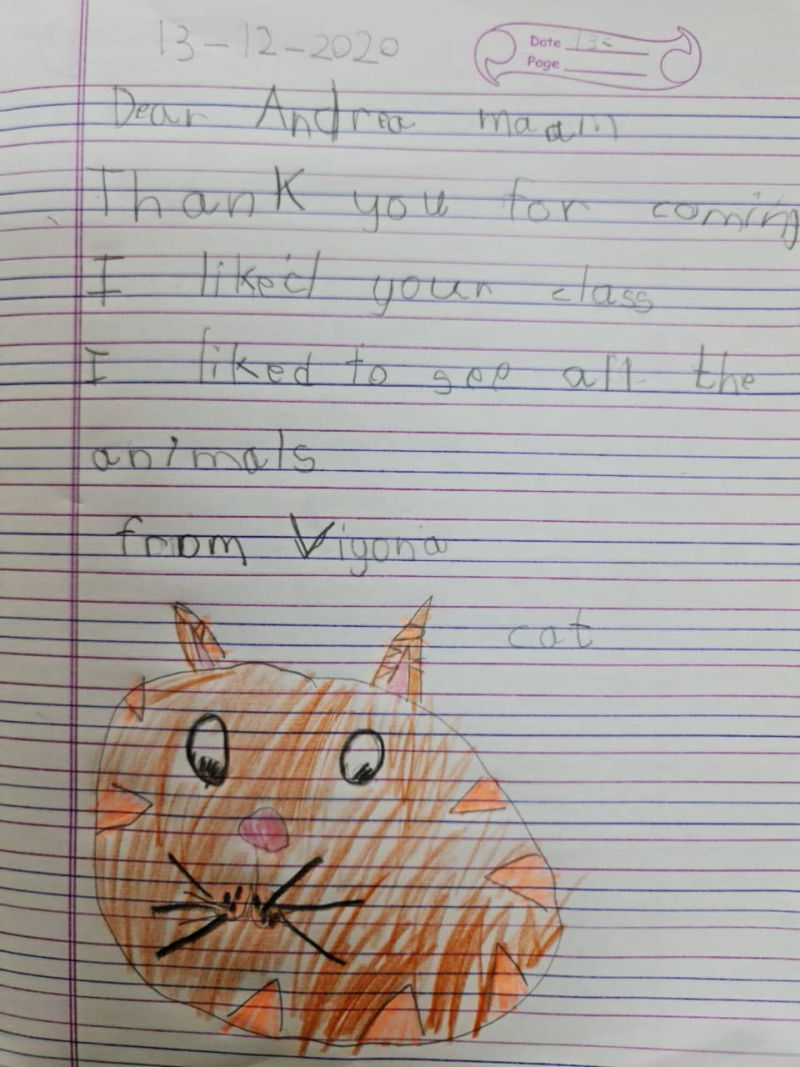 13-12-2020
Date 13-
Page
Dear Andrea maam
Thank you for coming
I liked your class
I liked to see all the
animals
from Viyona
cat